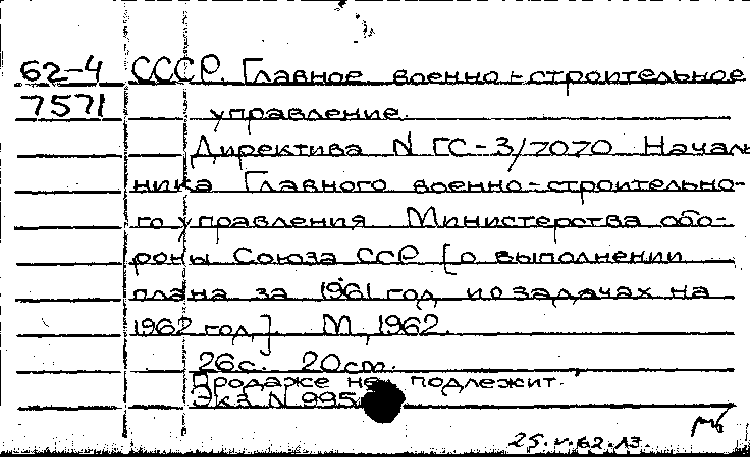 62-4 СССР. Главное военно-строительное
7571 управление.
Директива N ГС-3/7070 Началь
ника Главного военно-строительно-
го управления Министерства обо-
роны Союза ССР [о выполнении
плана за 1961 год и о задачах на
1962 год]. М, 1962.
26с. 20см.
Продаже не подлежит.
Экз N 995
25.V.62.